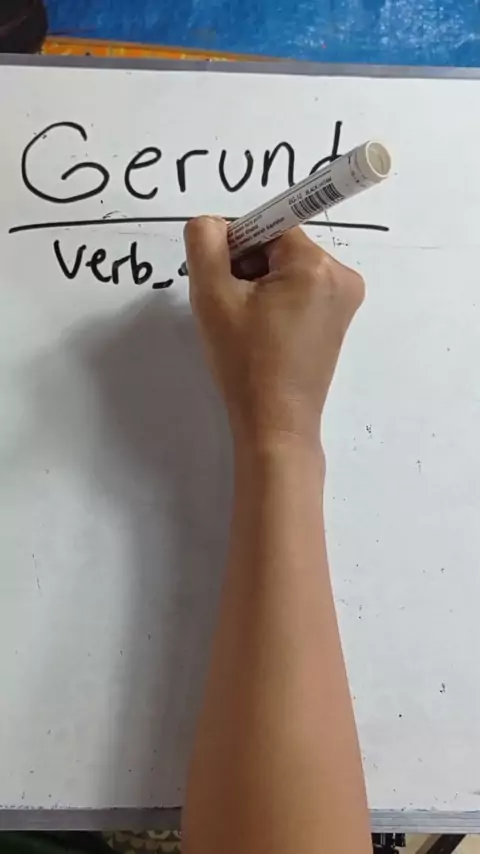 Gerund
Verb_